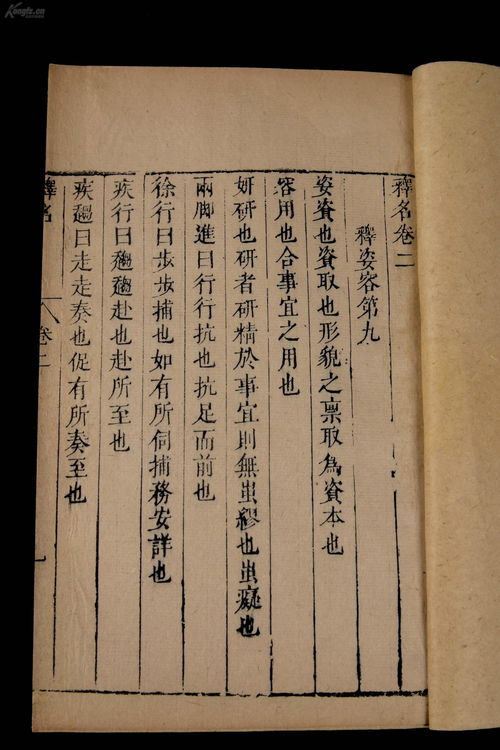 Kongfz.cn
釋名卷二
釋姿容第九
姿資也資取也形貌之禀取為資本也
容用也合事宜之用也
妍研也研者研精於事宜則無蚩繆也蚩癡也
兩脚進曰行行抗也抗足而前也
徐行曰步步捕也如有所伺捕務安詳也
疾行曰趨趨赴也赴所至也
疾趨曰走走奏也促有所奏至也
釋名
卷二
一